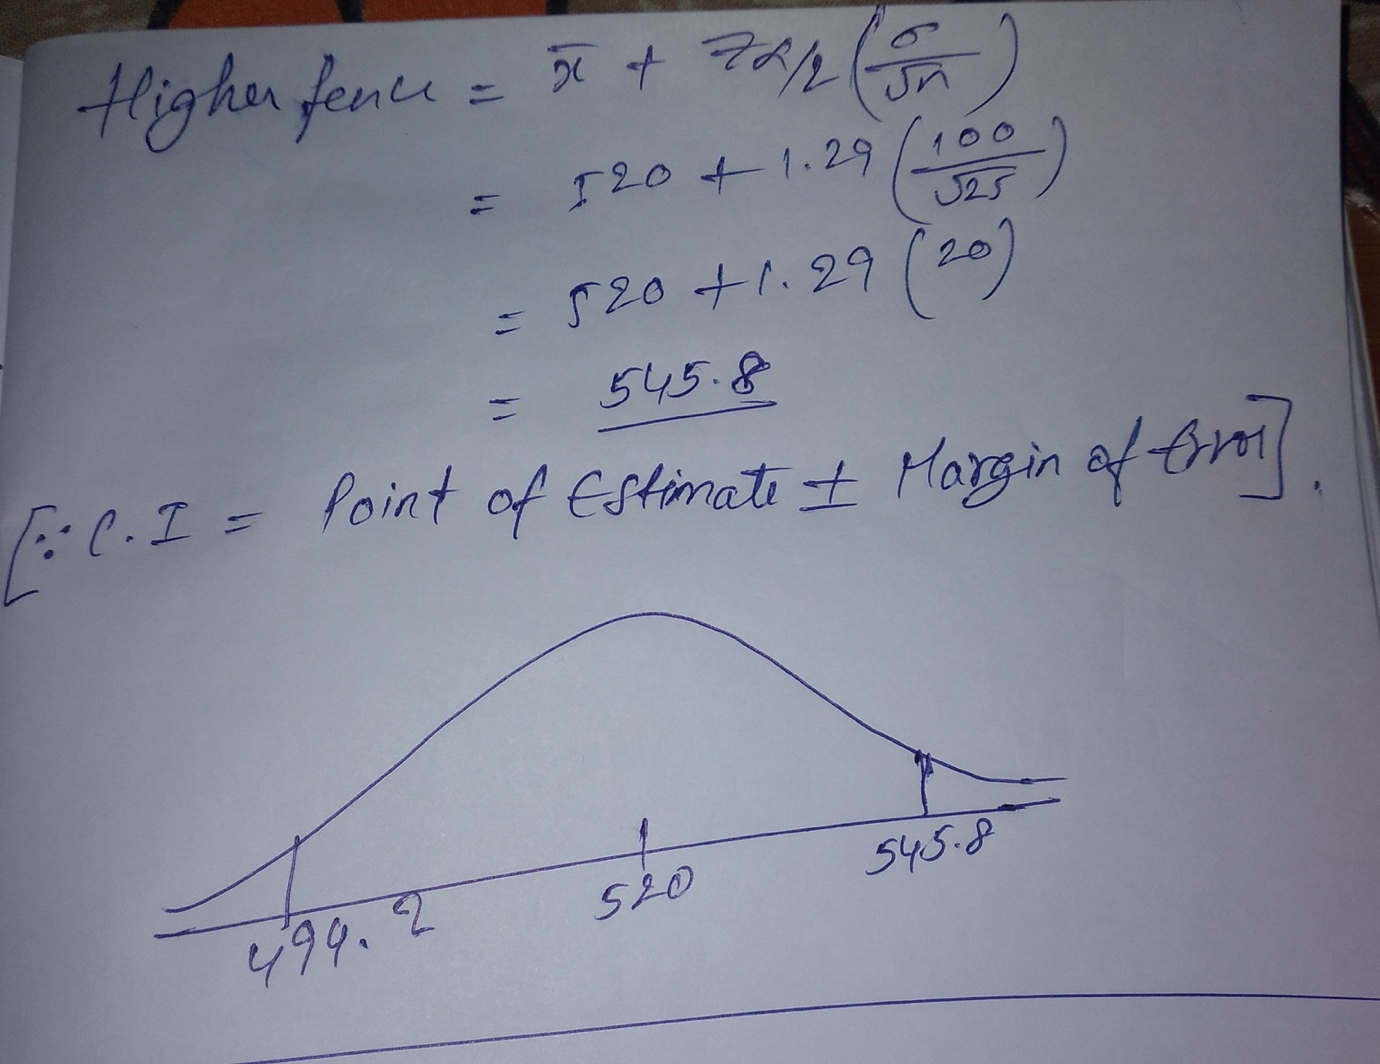 Higher fence = x̄ + Zα/2 (σ/√n)
= 520 + 1.29 (100/√25)
= 520 + 1.29 (20)
= 545.8
[∵ C.I = Point of Estimate ± Margin of Error].
494.2 520 545.8